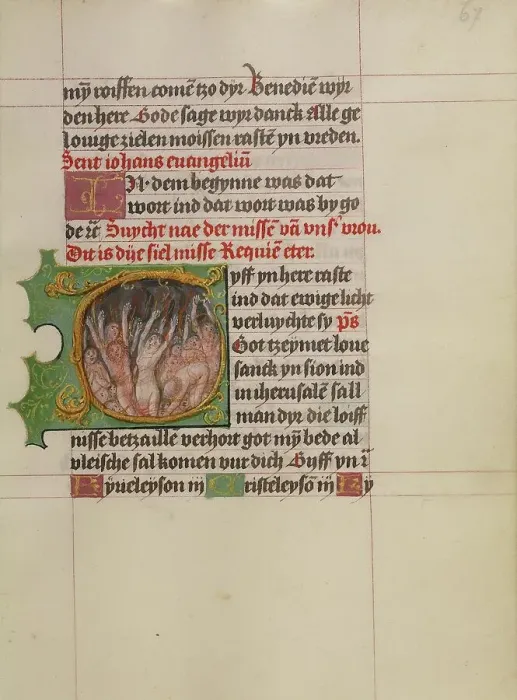 67
mỹ roiffen comẽ tzo dyr Benediẽ wyr
den here Gode sage wyr danck Alle ge
louige zielen moissen rastẽ yn vreden.
Sent iohans euangeliũ
IN dem begynne was dat
wort ind dat wort was by go
de rc̃ Suycht nae der missẽ vã vnsʳ vrou.
Dit is dye siel misse Requiẽ eter.
Gyff yn here raste
ind dat ewige licht
verluychte sy p̃s
Got tzeymet loue
sanck yn sion ind
in iherusalẽ sall
man dyr die loiff
nisse betzaillẽ verhoit got mỹ bede al
vleische sal komen vur dich Gyff yn r̃
Kyrieleyson iij Cristeleysõ iij Ky